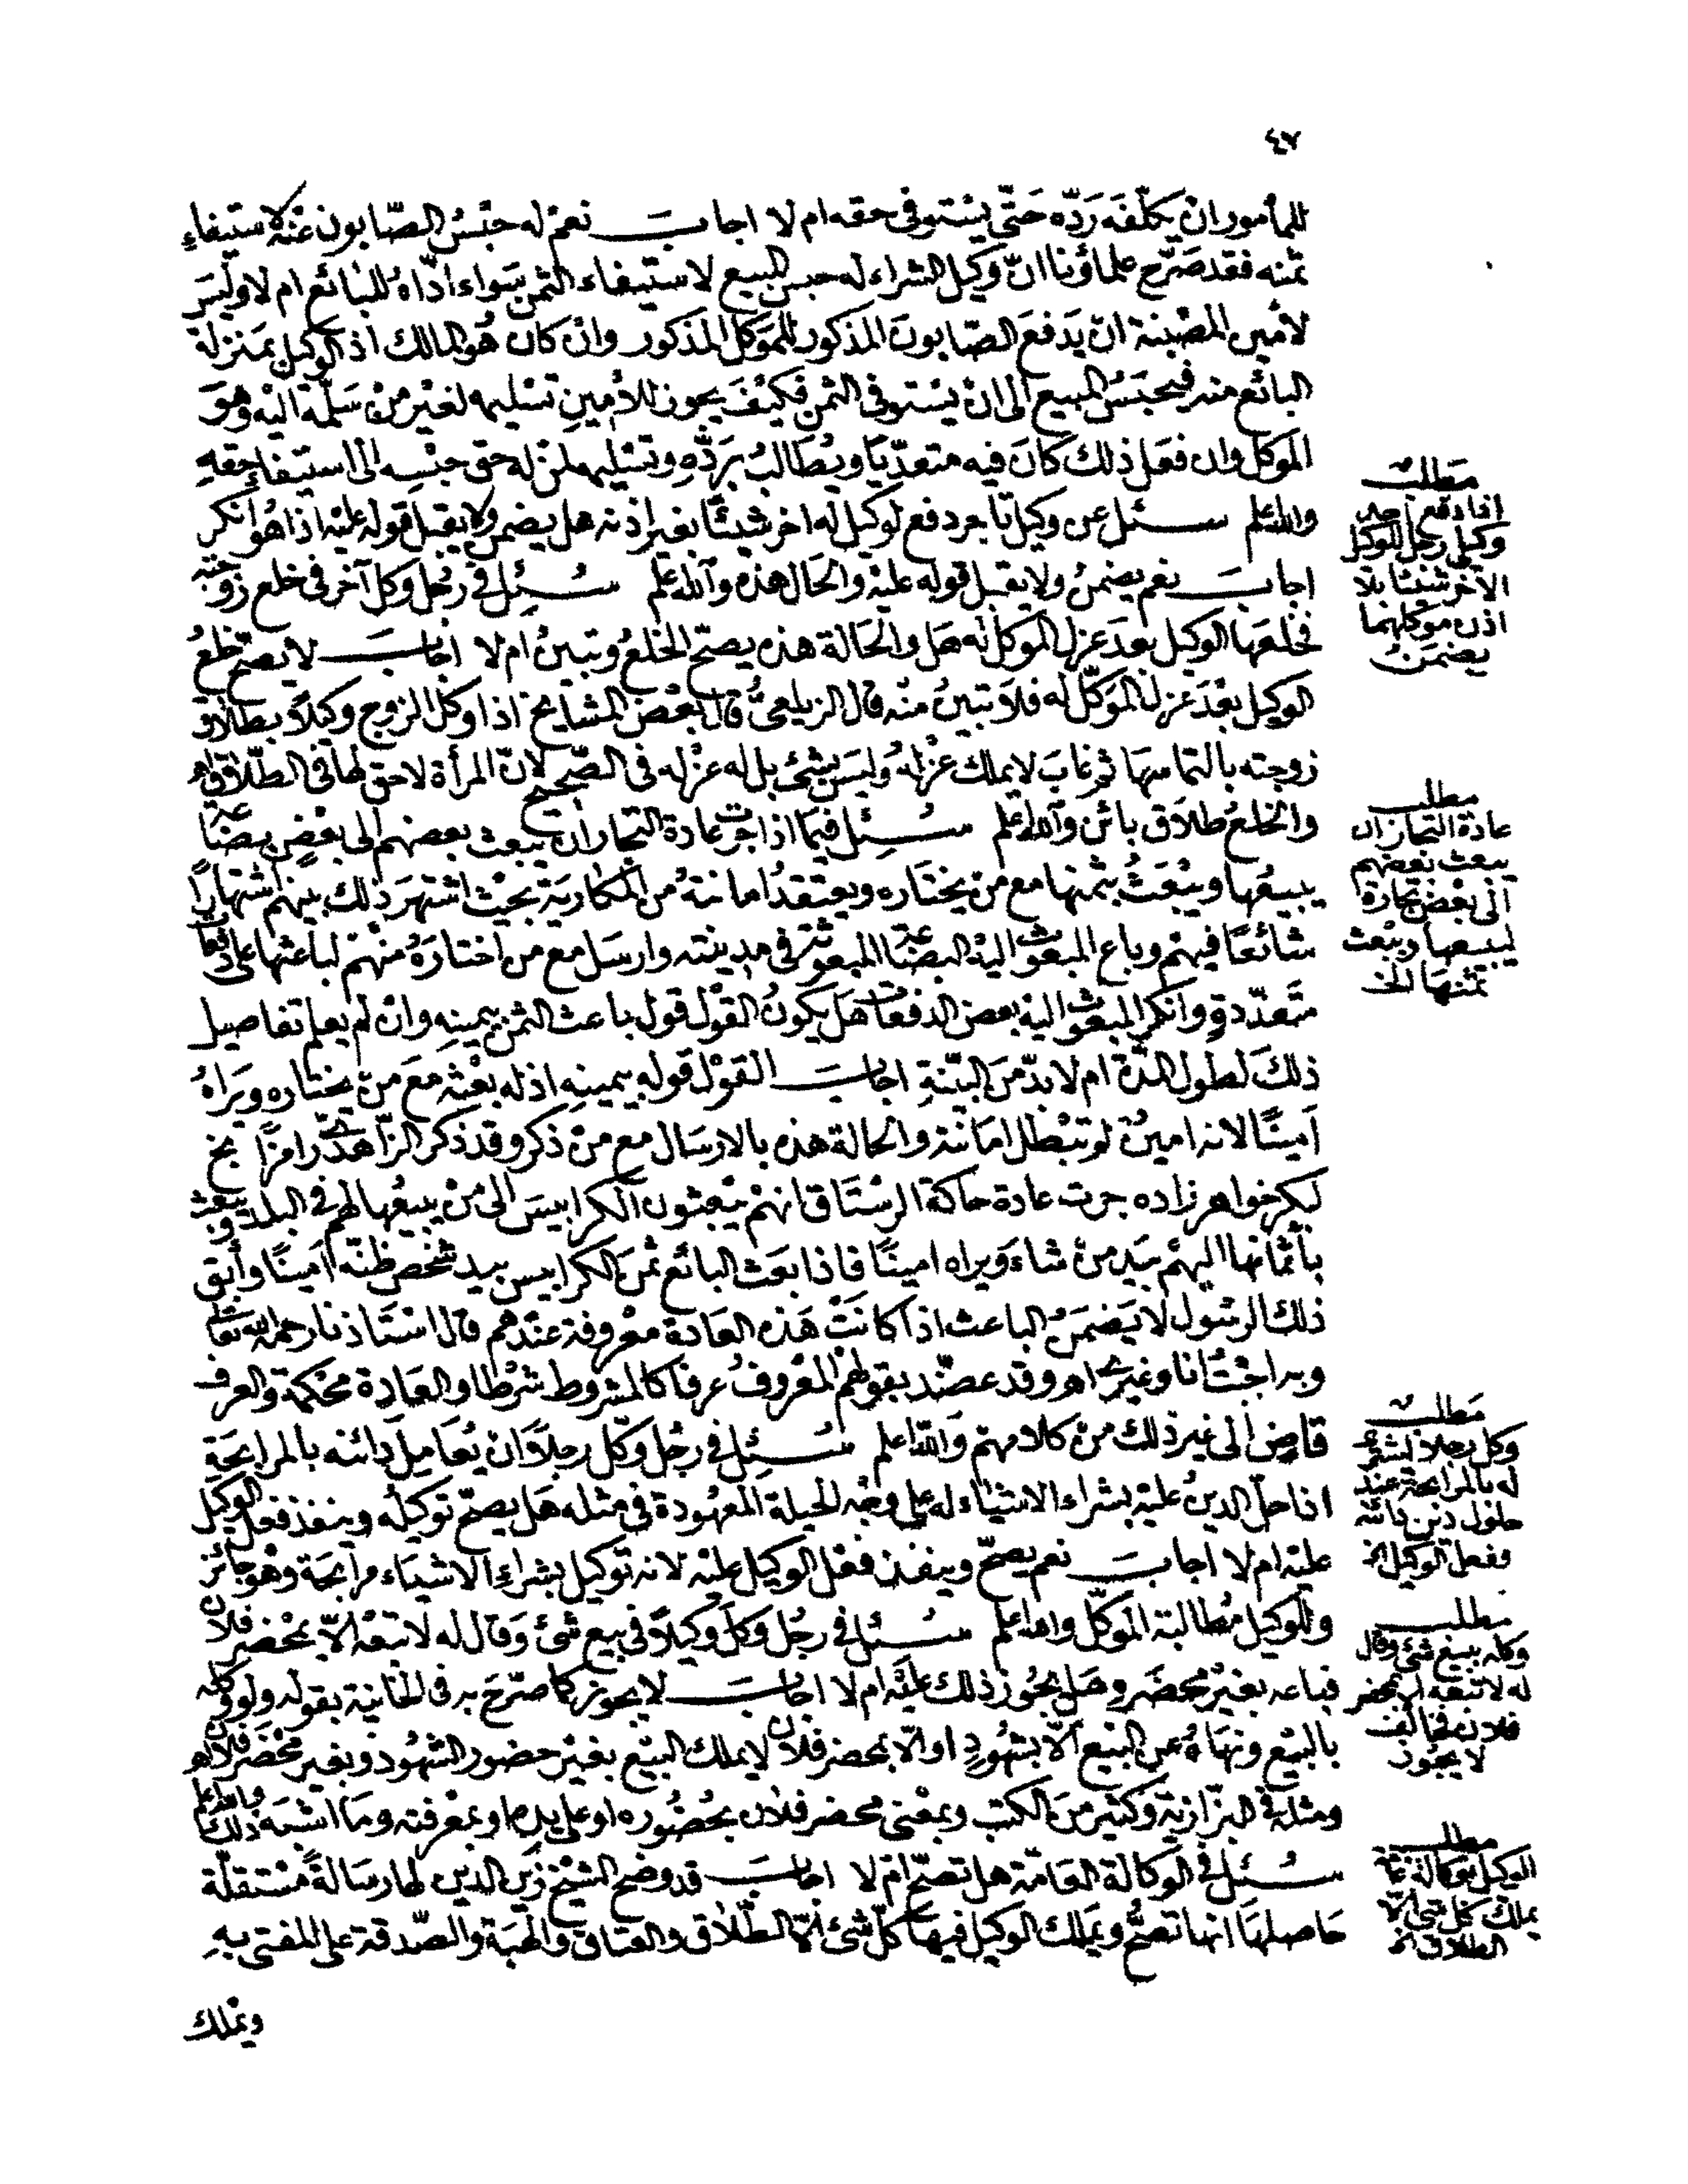 ٤٧
للمأمور ان يكلفه رده حتى يستوفى حقه ام لا اجاب نعم له حبس الصابون عنه لاستيفاء
ثمنه فقد صرح علماؤنا ان وكيل الشراء له حبس المبيع لاستيفاء الثمن سواء ادّاه للبائع ام لا وليس
لأمين المصبنة ان يدفع الصابون المذكور للموكل المذكور وان كان هو المالك اذ الوكيل بمنزلة
البائع منه فيحبس المبيع الى ان يستوفى الثمن فكيف يجوز للأمين تسليمه لغير من سلّمه اليه وهو
الموكل وان فعل ذلك كان فيه متعديا ويطالب بردّه وتسليمه لمن له حق حبسه الى استيفاء حقه
والله اعلم سئل عن وكيل تاجر دفع لوكيل له اخر شيئا بغير اذنه هل يضمن ولا يقبل قوله عليه اذا هو انكر
اجاب نعم يضمن ولا يقبل قوله عليه والحال هذه والله اعلم سئل في رجل وكل آخر في خلع زوجته
فخلعها الوكيل بعد عزل الموكل له هل والحالة هذه يصح الخلع وتبين ام لا اجاب لا يصح خلع
الوكيل بعد عزل الموكّل له فلا تبين منه قال الزيلعي قال بعض المشايخ اذا وكل الزوج وكيلا بطلاق
زوجته بالتماسها ثم غاب لا يملك عزله وليس بشئ بل له عزله في الصحيح لان المرأة لا حق لها في الطلاق اه
والخلع طلاق بائن والله اعلم سئل فيما اذا جرت عادة التجار ان يبعث بعضهم الى بعض بضاعة
يبيعها ويبعث بثمنها مع من يختاره ويعتقد امانته من المكارية بحيث اشتهر ذلك بينهم اشتهارا
شائعا فيهم وباع المبعوث اليه البضاعة المبعوثة في مدينته وارسل مع من اختاره منهم لباعثها على دفعات
متعددة وانكر المبعوث اليه بعض الدفعات هل يكون القول قول باعث الثمن بيمينه وان لم يعلم تفاصيل
ذلك لطول المدة ام لا بدّ من البيّنة اجاب القول قوله بيمينه اذ له بعثه مع من يختاره ويراه
أمينا لانه امين لم تبطل امانته والحالة هذه بالارسال مع من ذكر وقد ذكر الزاهدى رامزا بخ
لبكر خواهر زاده جرت عادة حاكة الرستاق انهم يبعثون الكرابيس الى من يبيعها لهم في البلد ويبعث
بأثمانها اليهم بيد من شاء ويراه امينا فاذا بعث البائع ثمن الكرابيس بيد شخص ظنّه امينا وأبق
ذلك الرسول لا يضمن الباعث اذا كانت هذه العادة معروفة عندهم قال استاذنا رحمه الله تعالى
وبه اجبت انا وغيرى اه وقد عضّد بقولهم المعروف عرفا كالمشروط شرطا والعادة محكمة والعرف
قاض الى غير ذلك من كلامهم والله اعلم سئل في رجل وكل رجلا ان يعامل دائنه بالمرابحة
اذا حل الدين عليه بشراء الاشياء له على وجه الحيلة المعهودة في مثله هل يصح توكيله وينفذ فعل الوكيل
عليه ام لا اجاب نعم يصح وينفذ فعل الوكيل عليه لانه توكيل بشراء الاشياء مرابحة وهو جائز
وللوكيل مطالبة الموكّل والله اعلم سئل في رجل وكل وكيلا في بيع شئ وقال له لا تبعه الا بمحضر فلان
فباعه بغير محضره هل يجوز ذلك عليه ام لا اجاب لا يجوز كما صرّح به في الخانية بقوله ولو وكله
بالبيع ونهاه عن البيع الا بشهود او الا بمحضر فلان لا يملك البيع بغير حضور الشهود وبغير محضر فلان اه
ومثله في البزازية وكثير من الكتب وبمعنى محضر فلان بحضوره او على يده او بمعرفته وما اشبه ذلك والله اعلم
سئل في الوكالة العامّة هل تصح ام لا اجاب قد وضح الشيخ زين الدين لها رسالة مستقلّة
حاصلها انها تصح ويملك الوكيل فيها كل شئ الا الطلاق والعتاق والهبة والصدقة على المفتى به
ويملك
مطلب
اذا دفع احد
وكيلي رجل للوكيل
الآخر شيئا بلا
اذن موكلهما
يضمن
مطلب
عادة التجار ان
يبعث بعضهم
الى بعض تجارة
ليبيعها ويبعث
ثمنها الخ
مطلب
وكل رجلا ليشتري
له بالمرابحة عند
حلول دين دائنه
وفعل الوكيل الخ
مطلب
وكله ببيع شئ وقال
له لا تبعه الا بمحضر
فلان فخالف
لا يجوز
مطلب
الوكيل بوكالة عامة
يملك كل شئ الا
الطلاق الخ